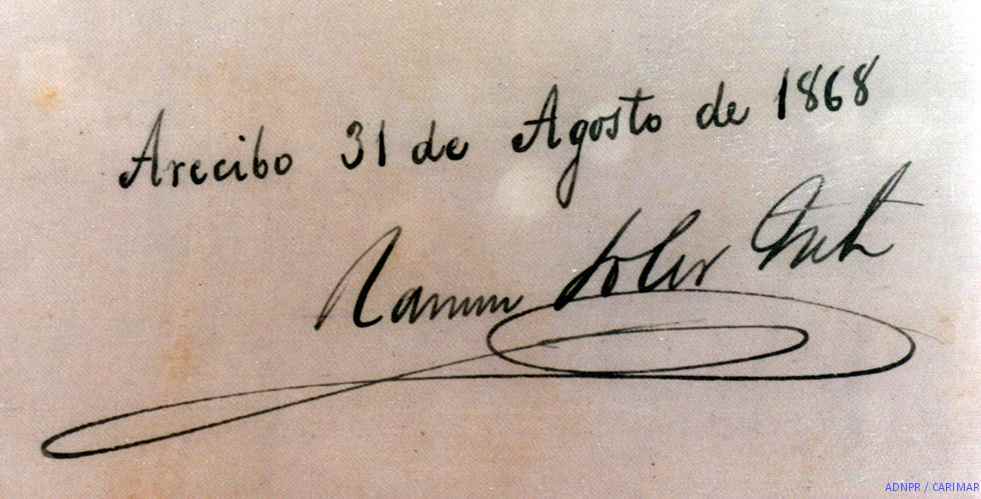 Arecibo 31 de Agosto de 1868
Ramon Soler
ADNPR / CARIMAR